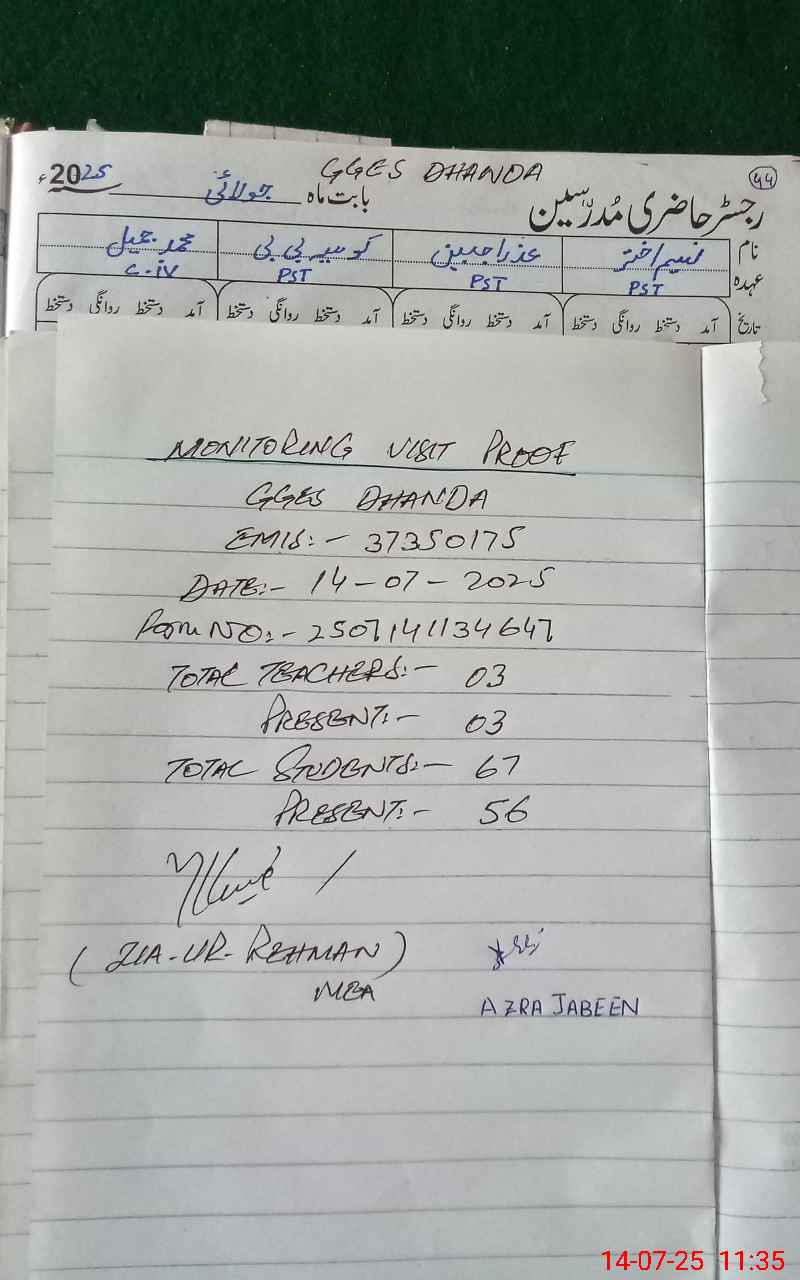 GGES DHANDA
44
2025ء
بابت ماہ جولائی
رجسٹر حاضری مُدرّسین
نام نسیم اختر عذرا جبین کو بی بی محمد جمیل
عہدہ PST PST PST C.iv
تاریخ آمد دستخط روانگی دستخط آمد دستخط روانگی دستخط آمد دستخط روانگی دستخط آمد دستخط روانگی دستخط
MONITORING VISIT PROOF
GGES DHANDA
EMIS:- 37350175
DATE:- 14-07-2025
Form NO:- 2507141134647
TOTAL TEACHERS:- 03
PRESENT:- 03
TOTAL STUDENTS:- 67
PRESENT:- 56
(ZIA-UR-REHMAN)
MEA
AZRA JABEEN
14-07-25 11:35